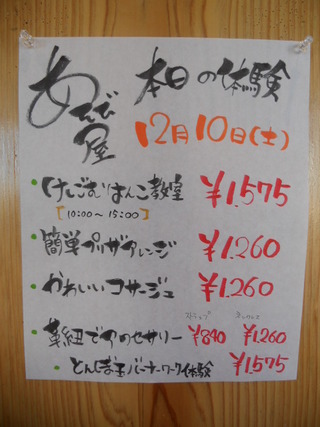 あそび屋
本日の体験
12月10日(土)
・けしごむはんこ教室 ¥1,575
[10:00〜15:00]
・簡単プリザアレンジ ¥1,260
・かわいいコサージュ ¥1,260
ストラップ
・革紐でアクセサリー ¥840 ¥1,260
・とんぼ玉バーナーワーク体験 ¥1,575